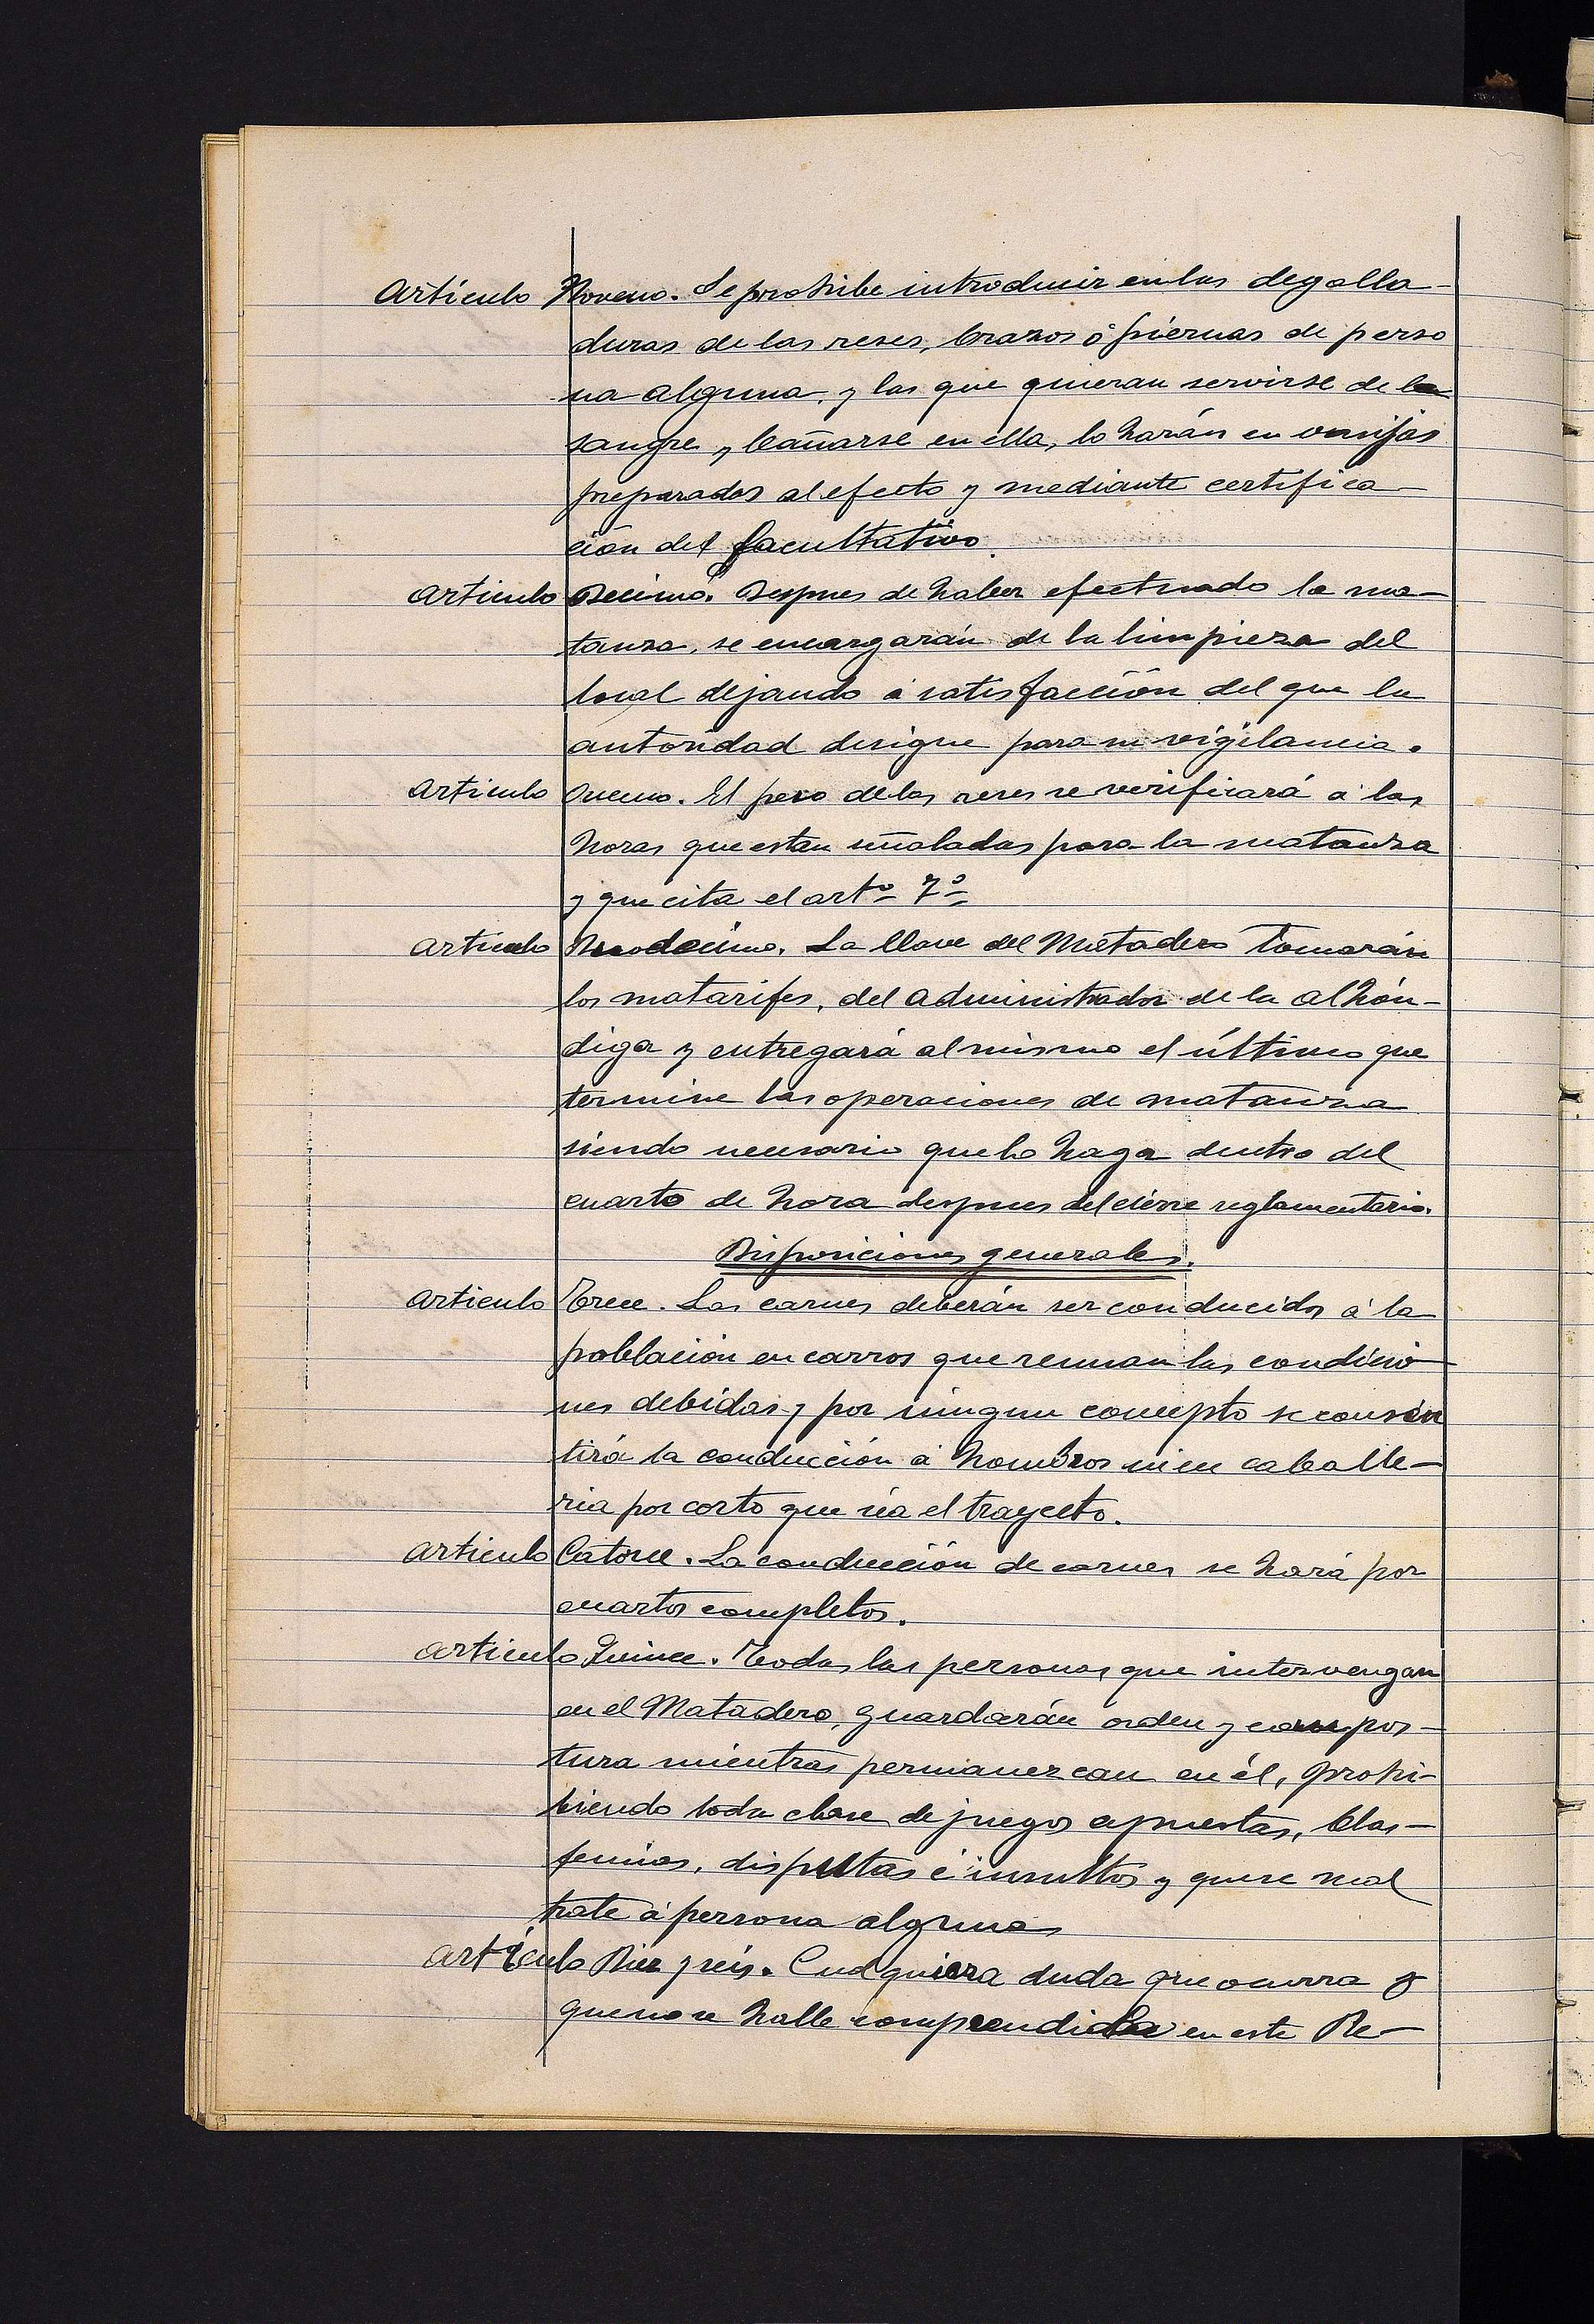 Artículo Noveno. Se prohibe introducir en las degolla-
duras de las reses, brazos ó piernas de perso
na alguna, y las que quieran servirse de la
sangre y bañarse en ella, lo harán en vasijas
preparados al efecto y mediante certifica-
ción del facultativo.
Articulo Decimo. Despues de haber efectuado la ma-
tanza, se encargarán de la limpieza del
local dejando á satisfacción del que la
autoridad designe para su vigilancia.
Articulo Onceno. El peso de las reses se verificará á las
horas que estan señaladas para la matanza
y que cita el artº 7º
Articulo Duodecimo. La llave del Matadero tomarán
los matarifes, del administrador de la alhón-
diga y entregará al mismo el último que
termine las operaciones de matanza
siendo necesario que lo haga dentro del
cuarto de hora despues del cierre reglamentario.
Disposiciones generales.
Articulo Trece. Las carnes deberán ser conducidas á la
población en carros que reunan las condicio-
nes debidas y por ningun concepto se consen
tirá la conducción á hombros ni en caballe-
ria por corto que sea el trayecto.
Articulo Catorce. La conducción de carnes se hará por
cuartos completos.
Articulo Quince. Todas las personas que intervengan
en el Matadero, guardarán orden y compos-
tura mientras permanezcan en él, prohi-
biendo toda clase de juegos apuestas, blas-
femias, disputas é insultos y que se mal
trate á persona alguna
Artículo Diez y seis. Cualquiera duda que ocurra y
que no se halle comprendida en este Re-